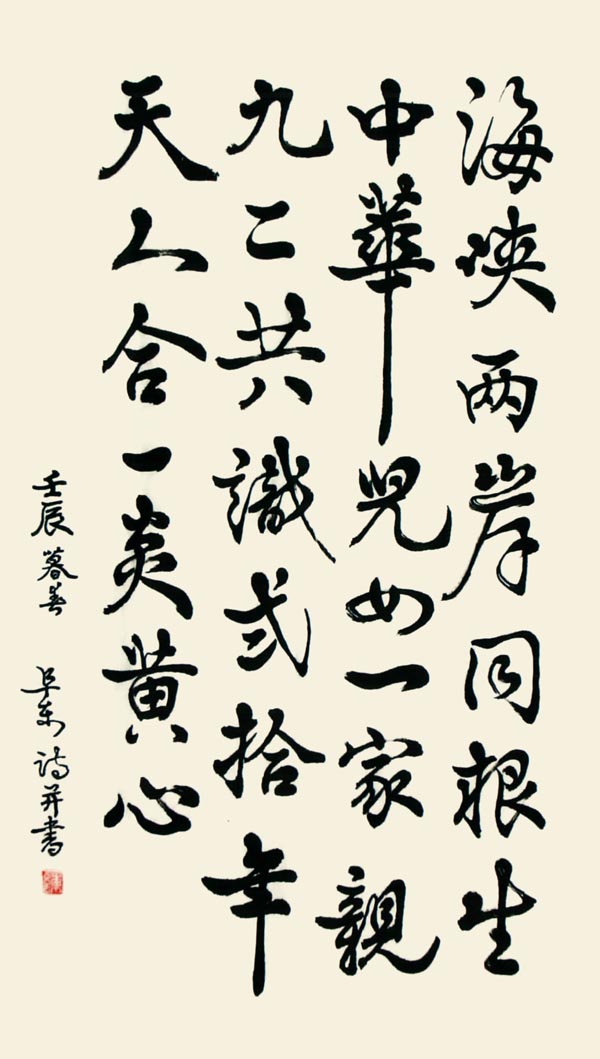 海峡两岸同根生
中華児女一家親
九二共識弍拾年
天人合一炎黄心
壬辰暮春
詩并書